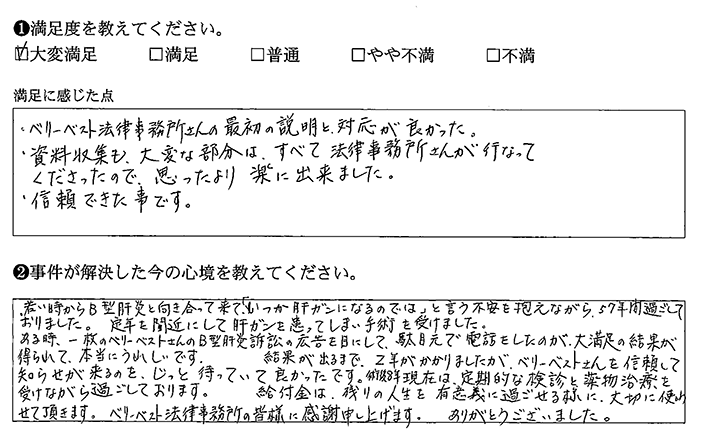 ❶満足度を教えてください。
☑大変満足 □満足 □普通 □やや不満 □不満
満足に感じた点
・ベリーベスト法律事務所さんの最初の説明と対応が良かった。
・資料収集も、大変な部分は、すべて法律事務所さんが行なって
くださったので、思ったより楽に出来ました。
・信頼できた事です。
❷事件が解決した今の心境を教えてください。
若い時からB型肝炎と向き合って来て、「いつか肝ガンになるのでは」と言う不安を抱えながら、57年間過ごして
おりました。 定年を間近にして肝ガンを患ってしまい手術を受けました。
ある時、一枚のベリーベストさんのB型肝炎訴訟の広告を目にして、駄目元で電話をしたのが、大満足の結果が
得られて、本当にうれしいです。 結果が出るまで、2年がかかりましたが、ベリーベストさんを信頼して
知らせが来るのを、じっと待っていて良かったです。術後8年現在は、定期的な検診と薬物治療を
受けながら過ごしております。 給付金は、残りの人生を有意義に過ごせる様に、大切に使わ
せて頂きます。ベリーベスト法律事務所の皆様に感謝申し上げます。 ありがとうございました。